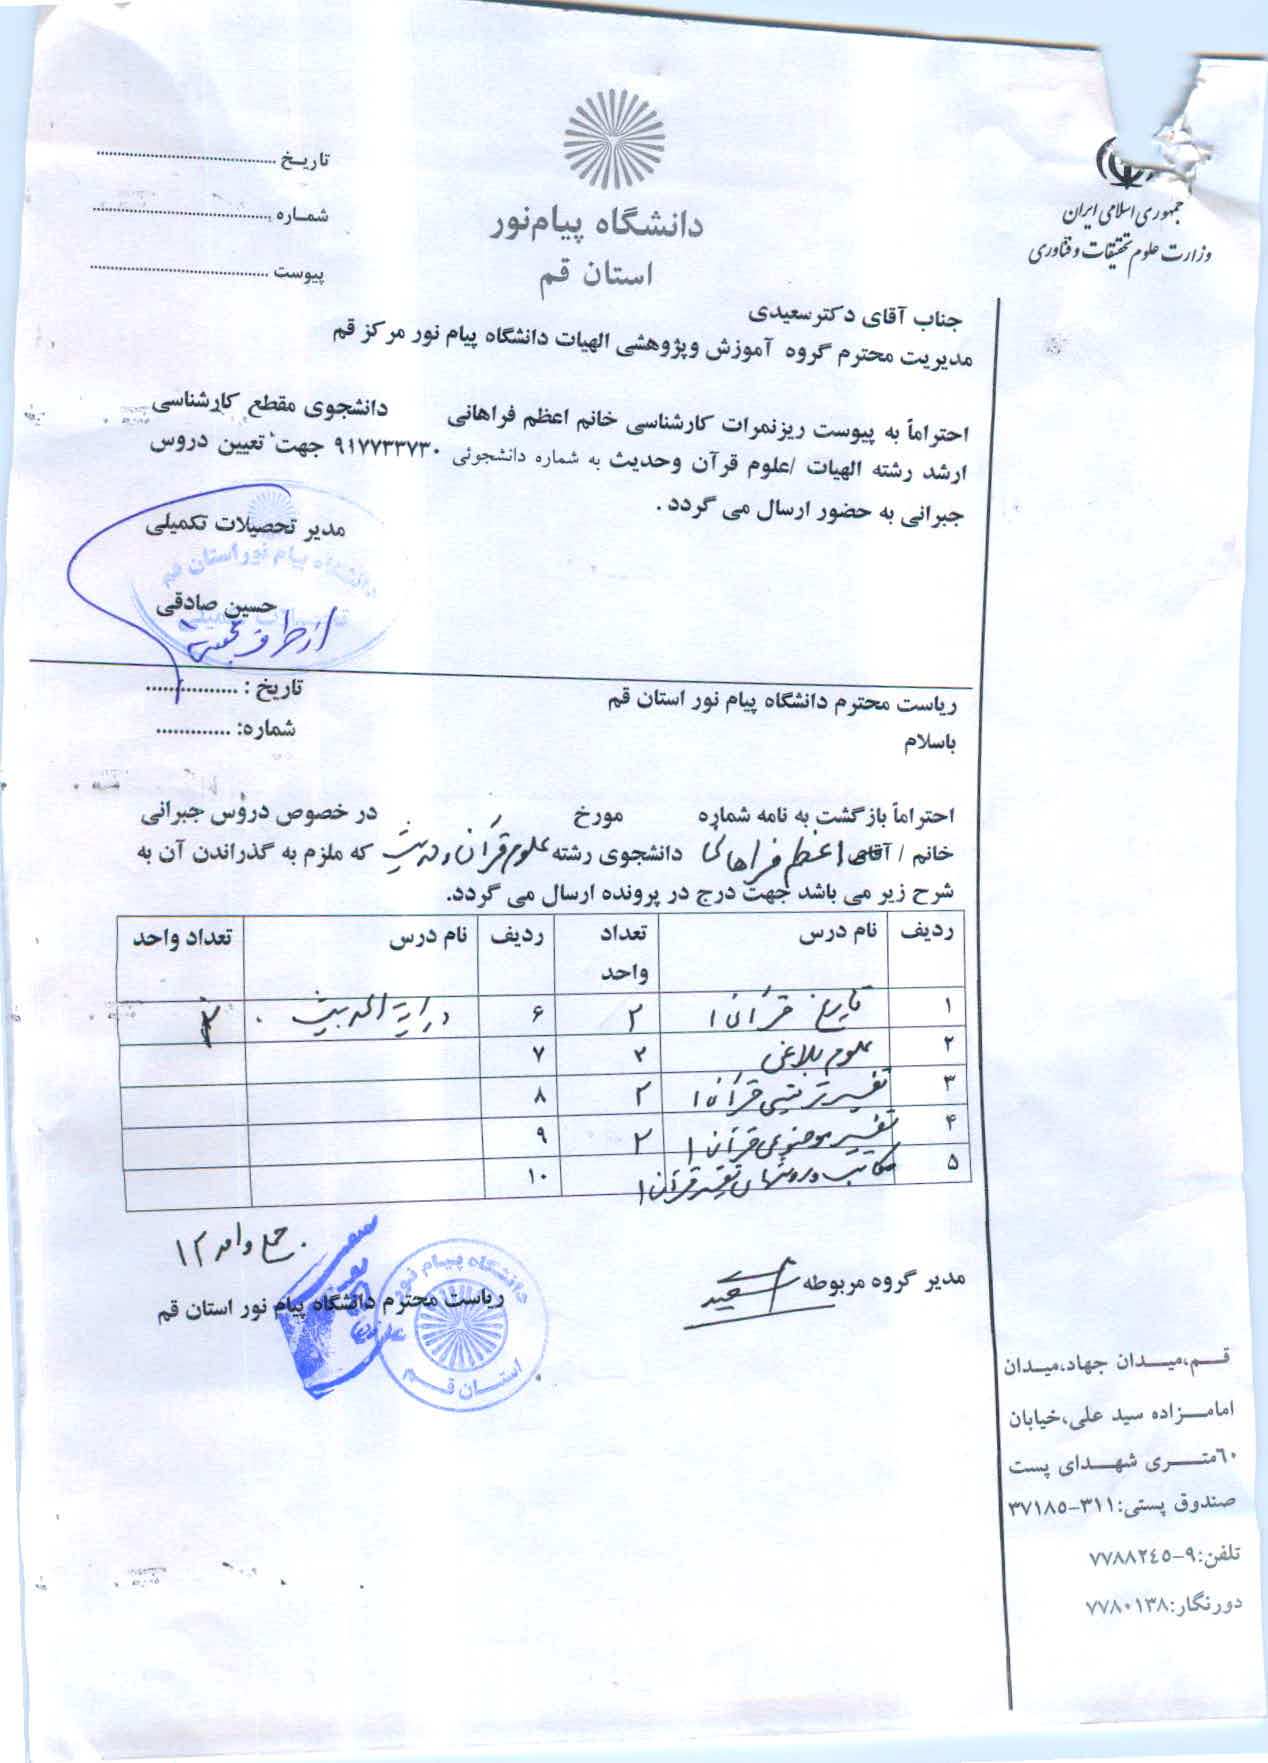 جمهوری اسلامی ایران
وزارت علوم تحقیقات و فناوری
دانشگاه پیام‌نور
استان قم
تاریـخ ..........................................
شمـاره ..........................................
پیوست ..........................................
جناب آقای دکترسعیدی
مدیریت محترم گروه آموزش وپژوهشی الهیات دانشگاه پیام نور مرکز قم
احتراماً به پیوست ریزنمرات کارشناسی خانم اعظم فراهانی دانشجوی مقطع کارشناسی
ارشد رشته الهیات /علوم قرآن وحدیث به شماره دانشجوئی ۹۱۷۷۳۳۷۳۰ جهت تعیین دروس
جبرانی به حضور ارسال می گردد .
مدیر تحصیلات تکمیلی
دانشگاه پیام نور استان قم
حسین صادقی
از طرف
ریاست محترم دانشگاه پیام نور استان قم
تاریخ : .................
باسلام
شماره: .............
احتراماً بازگشت به نامه شماره مورخ در خصوص دروس جبرانی
خانم / آقای اعظم فراهانی دانشجوی رشته علوم قرآن و حدیث که ملزم به گذراندن آن به
شرح زیر می باشد جهت درج در پرونده ارسال می گردد.
ردیف نام درس تعداد واحد ردیف نام درس تعداد واحد
۱ تاریخ قرآن ۱ ۲ ۶ درایة الحدیث ۲
۲ علوم بلاغی ۲ ۷
۳ تفسیر ترتیبی قرآن ۱ ۲ ۸
۴ تفسیر موضوعی قرآن ۱ ۲ ۹
۵ مکاتب و روشهای تفسیر قرآن ۱ ۱۰
جمع واحد ۱۲
مدیر گروه مربوطه سعیدی
ریاست محترم دانشگاه پیام نور استان قم
دانشگاه پیام نور
استان قم
قـــم،میــدان جهاد،میـدان
امامـــزاده سید علی،خیابان
۶۰متـــری شهــدای پست
صندوق پستی:۳۱۱-۳۷۱۸۵
تلفن:۹-۷۷۸۸۲٤٥
دورنگار:۷۷۸۰۱۳۸